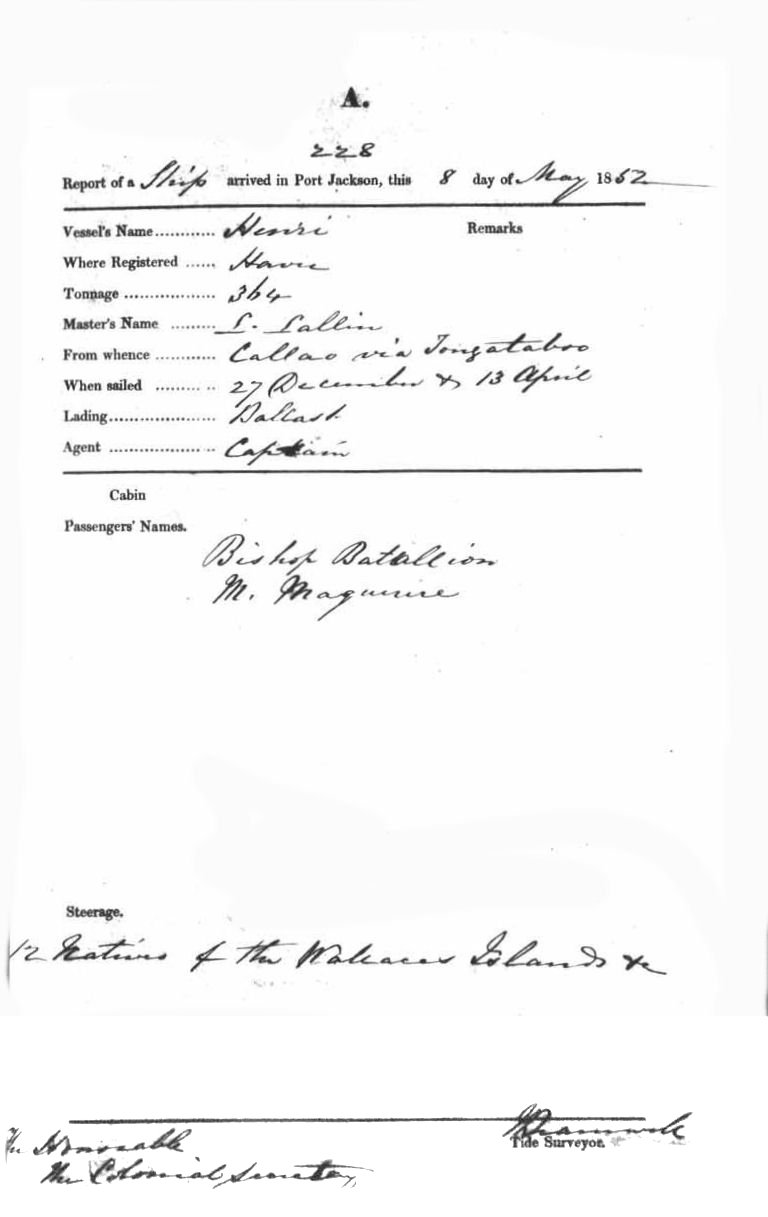 A.
228
Report of a Ship arrived in Port Jackson, this 8 day of May 1852
Vessel's Name ............ Henri Remarks
Where Registered ...... Havre
Tonnage .................. 364
Master's Name .........
From whence ............ Callao via Tongataboo
When sailed ......... .. 27 December & 13 April
Lading.................... Ballast
Agent .................. .. Captain
Cabin
Passengers' Names.
Bishop Batallion
M.
Steerage.
12 Natives of the Wallaces Islands &c
The Honorable
Tide Surveyor.
The Colonial Secretary